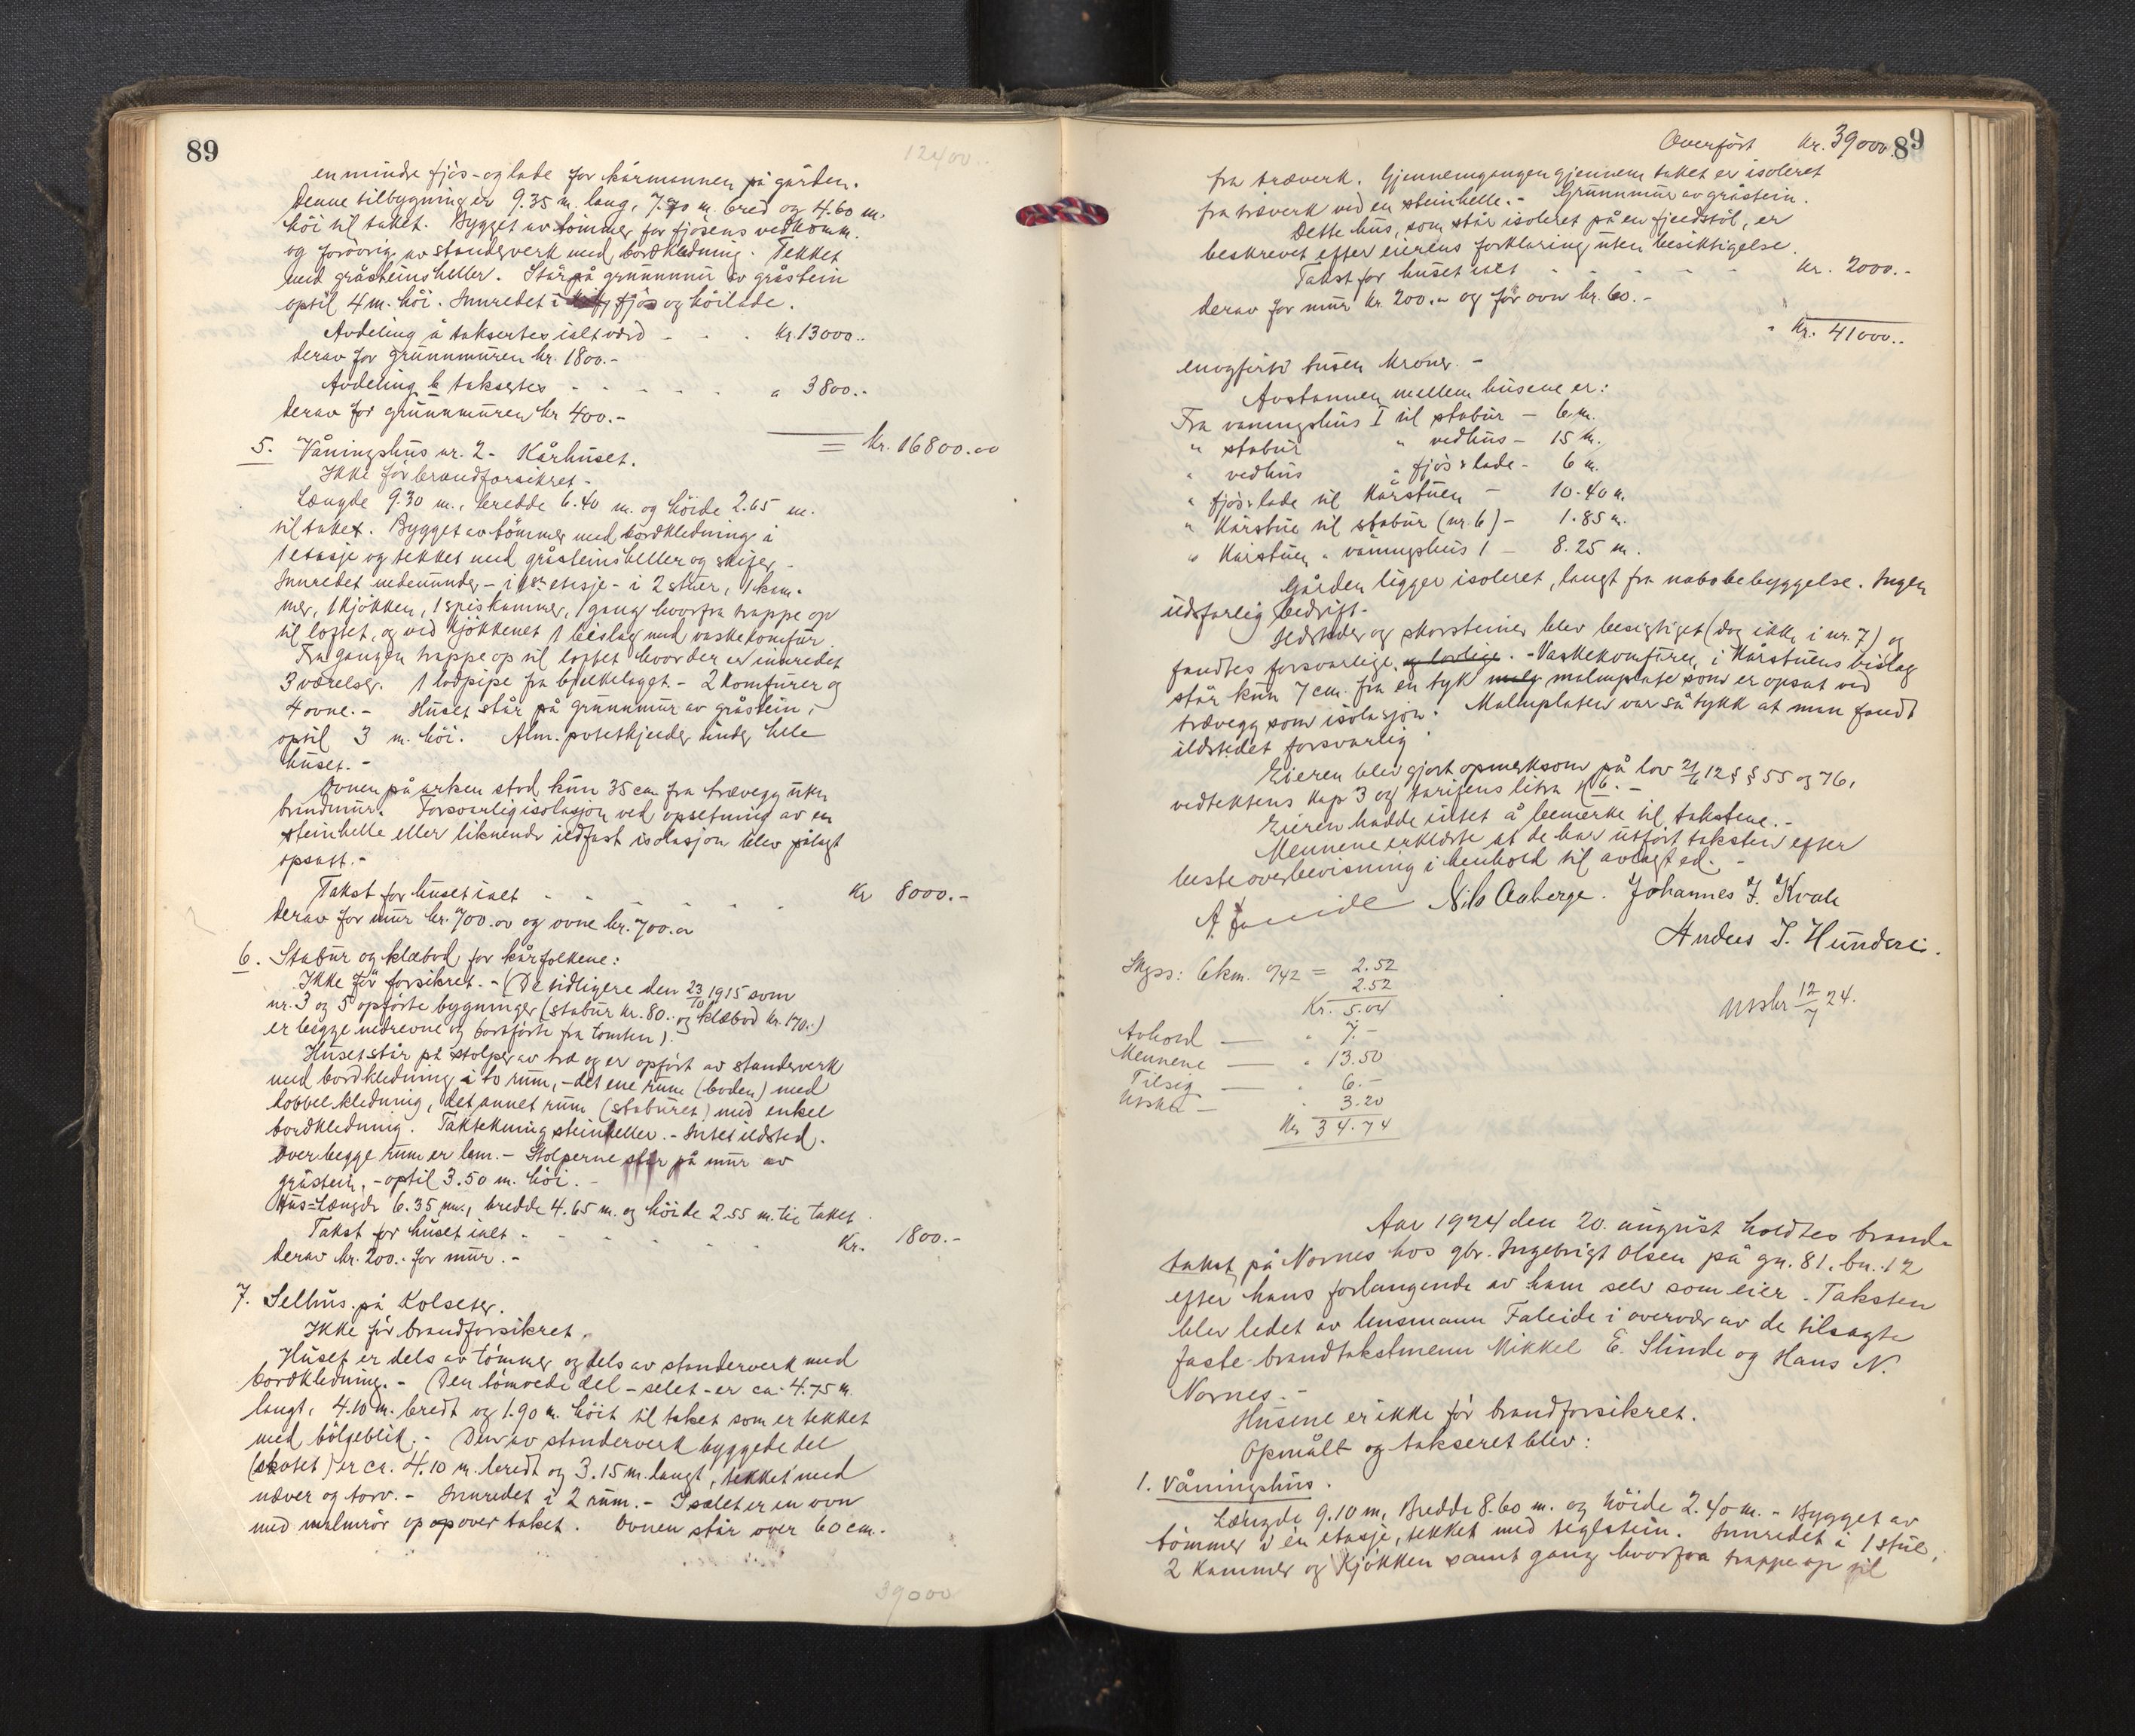 89
12400..
en mindre fjös- og lade for kårmannen på gården.
Denne tilbygning er 9.35 m. lang, 7.70 m. bred og 4.60 m.
höi til taket. Bygget av tömmer for fjösens vedkomm.
og forövrig av standerverk med bordkledning. Tekket
med gråsteinsheller. Står på grunnmur av gråstein
optil 4 m. höi. Innredet i fjös og höilade.
Avdeling a taksertes ialt værd - - . kr. 13000..
derav for grunnmuren kr. 1800.-
Avdeling b taksertes - - - - - . " 3800.-
derav for grunnmuren kr 400.-
= kr. 16800.00
5. Våningshus nr. 2 - Kårhuset.
Ikke för brandforsikret -
Længde 9.30 m., bredde 6.40 m. og höide 2.65 m.
til taket. Bygget av tömmer med bordkledning i
1 etasje og tekket med gråsteinsheller og skifer -
Innredet nedenunder - i 1ste etasje - i 2 stuer, 1 kam-
mer, 1 kjökken, 1 spiskammer, 1 gang hvorfra trappe op
til loftet, og ved kjökkenet 1 bislag med vaskekomfur
Fra gangen trappe op til loftet hvor der er innredet
3 værelser. 1 lodpipe fra bjelkelaget. - 2 komfurer og
4 ovne. - Huset står på grunnmur av gråstein,
optil 3 m. höi. Alm. potetkjelder under hele
huset. -
Ovnen på arken stod kun 35 cm fra trævegg uten
brandmur. Forsvarlig isolasjon ved opsetning av en
steinhelle eller liknende ildfast isolasjon blev pålagt
opsatt. -
Takst for huset ialt - - - - - . Kr 8000.-
derav for mur kr. 700.00 og ovne kr. 700.00
6. Stabur og klæbod for kårfolkene:
Ikke för forsikret. - (De tidligere den 23/10 1915 som
nr. 3 og 5 opförte bygninger (stabur kr. 80.. og klæbod kr. 170..)
er begge nedrevne og bortförte fra tomten).
Huset står på stolper av træ og er opfört av standerverk
med bordkledning i to rum, - det ene rum (boden) med
dobbel kledning, det annet rum (staburet) med enkel
bordkledning. Taktekning steinheller. - Intet ildsted.
Over begge rum er lem. - Stolperne står på mur av
gråstein, - optil 3.50 m. höi. -
Hus=Længde 6.35 m., bredde 4.65 m. og höide 2.55 m. til taket.
Takst for huset ialt - - - - - . Kr. 1800.-
derav kr. 200.- for mur. -
7. Selhus på Kolseter.
Ikke för brandforsikret.
Huset er dels av tömmer og dels av standerverk med
bordkledning. - Den tömrede del - selet - er ca. 4.75 m.
langt, 4.10 m. bredt og 1.90 m. höit til taket som er tekket
med bölgeblik. - Den av standerverk byggede del
(skotet) er ca. 4.10 m. bredt og 3.15 m. langt, tekket med
næver og torv. - Innredet i 2 rum. - I selet er en ovn
med malmrör op over taket. Ovnen står over 60 cm.
39000
89
Overfört kr. 39000.
fra træverk. Gjennemgangen gjennem taket er isoleret
fra træverk ved en steinhelle. - Grunnmur av gråstein.
Dette hus, som står isoleret på en fjeldstöl, er
beskrevet efter eierens forklaring uten besiktigelse.
Takst for huset ialt - - - - - kr. 2000.-
derav for mur kr. 200.- og for ovn kr. 60.-
- Kr. 41000..
enogførti tusen kroner. -
Avstannen mellem husene er:
Fra vaningshus I til stabur - 6 m.
" stabur " vedhus - 15 m.
" vedhus " fjös & lade - 6 m.
" fjös & lade til Kårstuen - 10.40 m.
" Kårstue til stabur (nr. 6) - 1.85 m.
" Kårstuen " våningshus 1 - 8.25 m.
Gården ligger isoleret, langt fra nabobebyggelse. Ingen
ildsfarlig bedrift.
Ildsteder og skorsteiner blev besigtiget (dog ikke i nr. 7) og
fandtes forsvarlige og lovlige. - Vaskekomfuren i Kårstuens bislag
står kun 7 cm. fra en tyk malmplate som er opsat ved
trævegg som isolasjon. Malmplaten var så tykk at man fandt
ildstedet forsvarlig.
Eieren blev gjort opmerksom på lov 21/6 12 §§ 55 og 76,
vedtektens kap 3 og tarifens litra H 6. -
Eieren hadde intet å bemerke til takstene. -
Mennene erklærte at de har utfört taksten efter
beste overbevisning i henhold til avlagt ed. -
A Faleide Nils Aaberge. Johannes J. Kvale
Anders J. Hundere.
Skyss: 6 km. à /42 = 2.52
2.52
Kr. 5.04
Avhold - " 7.-
Mennene - " 13.50
Tilsig - " 6.-
Utskr - " 3.20
Kr 34.74
Utskr 12/7 24.
Aar 1924 den 20. august holdtes brand-
takst på Nornes hos gbr. Ingebrigt Olsen på gn. 81, bn. 12
efter hans forlangende av ham selv som eier. Taksten
blev ledet av lensmann Faleide i overvær av de tilsagte
faste brandtakstmenn Mikkel E. Slinde og Hans N.
Nornes. -
Husene er ikke för brandforsikret.
Opmålt og takseret blev:
1. Våningshus.
Længde 9.10 m, Bredde 8.60 m. og höide 2.40 m. - Bygget av
tömmer i én etasje, tekket med teglstein. Innredet i 1 stue,
2 kammer og kjökken samt gang hvorfra trappe op til